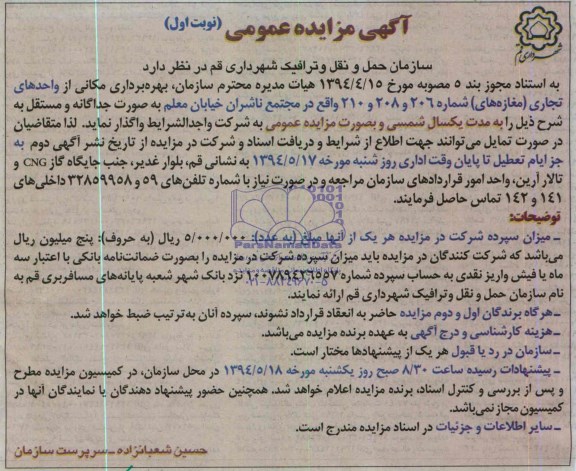 آگهی مزایده عمومی (نوبت اول)
سازمان حمل و نقل وترافیک شهرداری قم در نظر دارد
به استناد مجوز بند ۵ مصوبه مورخ ۱۳۹۴/۴/۱۵ هیات مدیره محترم سازمان، بهره‌برداری مکانی از واحدهای
تجاری (مغازه‌های) شماره ۲۰۶ و ۲۰۸ و ۲۱۰ واقع در مجتمع ناشران خیابان معلم به صورت جداگانه و مستقل به
شرح ذیل را به مدت یکسال شمسی و بصورت مزایده عمومی به شرکت واجدالشرایط واگذار نماید. لذا متقاضیان
در صورت تمایل می‌توانند جهت اطلاع از شرایط و دریافت اسناد و شرکت در مزایده از تاریخ نشر آگهی دوم به
جز ایام تعطیل تا پایان وقت اداری روز شنبه مورخه ۱۳۹۴/۵/۱۷ به نشانی قم، بلوار غدیر، جنب جایگاه گاز CNG و
تالار آرین، واحد امور قراردادهای سازمان مراجعه و در صورت نیاز با شماره تلفن‌های ۵۹ و ۳۲۸۵۹۹۵۸ داخلی‌های
۱۴۱ و ۱۴۲ تماس حاصل فرمایند.
توضیحات:
ـ میزان سپرده شرکت در مزایده هر یک از آنها مبلغ (به عدد): ۵/۰۰۰/۰۰۰ ریال (به حروف): پنج میلیون ریال
می‌باشد که شرکت کنندگان در مزایده باید میزان سپرده شرکت در مزایده را بصورت ضمانت‌نامه بانکی با اعتبار سه
ماه یا فیش واریز نقدی به حساب سپرده شماره ۲۰۰۷۸۹۴۲۶۵۵۷ نزد بانک شهر شعبه پایانه‌های مسافربری قم به
نام سازمان حمل و نقل وترافیک شهرداری قم ارائه نمایند.
ـ هرگاه برندگان اول و دوم مزایده حاضر به انعقاد قرارداد نشوند، سپرده آنان به‌ترتیب ضبط خواهد شد.
ـ هزینه کارشناسی و درج آگهی به عهده برنده مزایده می‌باشد.
ـ سازمان در رد یا قبول هر یک از پیشنهادها مختار است.
ـ پیشنهادات رسیده ساعت ۸/۳۰ صبح روز یکشنبه مورخه ۱۳۹۴/۵/۱۸ در محل سازمان، در کمیسیون مزایده مطرح
و پس از بررسی و کنترل اسناد، برنده مزایده اعلام خواهد شد. همچنین حضور پیشنهاد دهندگان یا نمایندگان آنها در
کمیسیون مجاز نمی‌باشد.
ـ سایر اطلاعات و جزئیات در اسناد مزایده مندرج است.
حسین شعبانزاده ـ سرپرست سازمان